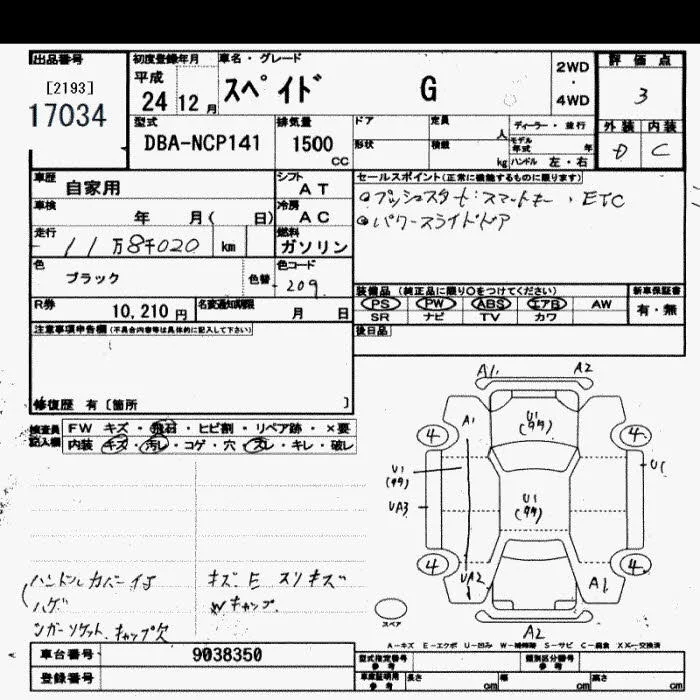 出品番号
[2193]
17034
初度登録年月
平成
24 12月
車名・グレード
スペイド G
2WD
・
4WD
評価点
3
外装 内装
D C
型式
DBA-NCP141
排気量
1500
CC
ドア
形状
定員
人
積載
kg
ディーラー・並行
モデル年式 年
ハンドル 左・右
車歴
自家用
シフト
AT
車検
年 月( 日)
冷房
AC
走行
11万8千020 km
燃料
ガソリン
色
ブラック
色替
色コード
209
セールスポイント(正常に機能するものに限ります)
プッシュスタート:スマートキー、ETC
パワースライドドア
装備品(純正品に限り○をつけてください)
PS PW ABS エアB AW
SR ナビ TV カワ
新車保証書
有・無
R券
10,210円
名変通知期限
月 日
後日品
注意事項申告欄(不具合内容等は具体的に記入して下さい)
修復歴 有〔箇所 〕
検査員
記入欄
FW キズ・飛石・ヒビ割・リペア跡・×要
内装 キズ・汚レ・コゲ・穴・スレ・キレ・破レ
A1 A2
A1
U1
4 4
U1
U1
UA3
U1
4 4
UA2
A1
A2
スペア
ハンドルカバーイタ キズ
ハゲ Wキャップ
シガーソケットキャップ欠
A-キズ E-エクボ U-凹み W-補修跡 S-サビ C-腐食 XX-交換済
車台番号
9038350
登録番号
型式指定番号
参考
類別区分番号
参考
車庫証明用
参考
長さ cm
幅 cm
高さ cm